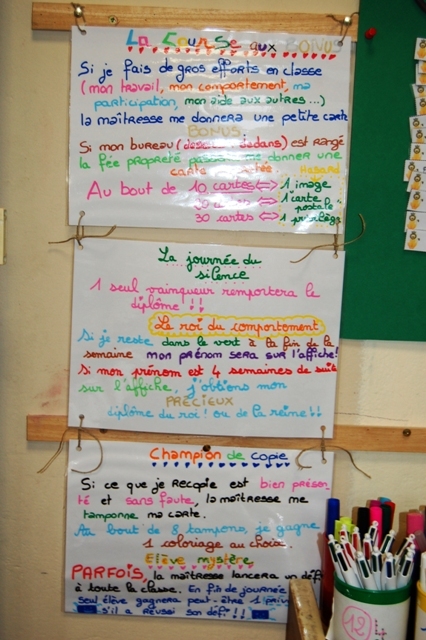 La Course aux BONUS
Si je fais de gros efforts en classe
(mon travail, mon comportement, ma
participation, mon aide aux autres...)
la maîtresse me donnera une petite carte
BONUS
Si mon bureau (dessus, dedans) est rangé
la fée propreté passera me donner une
carte
Au bout de 10 cartes ⇔ 1 image
20 cartes ⇔ 1 carte
postale
30 cartes ⇔ 1 privilège
La journée du
silence
1 seul vainqueur remportera le
diplôme !!
Le roi du comportement
Si je reste dans le vert à la fin de la
semaine mon prénom sera sur l'affiche!
Si mon prénom est 4 semaines de suite
sur l'affiche, j'obtiens mon
PRÉCIEUX
diplôme du roi! ou de la reine!!
Champion de copie
Si ce que je recopie est bien présen-
té et sans faute, la maîtresse me
tamponne ma carte.
Au bout de 8 tampons, je gagne
1 coloriage au choix.
Elève mystère
PARFOIS, la maîtresse lancera un défi
à toute la classe. En fin de journée
seul élève gagnera peut-être 1
s'il a réussi son défi!!
12